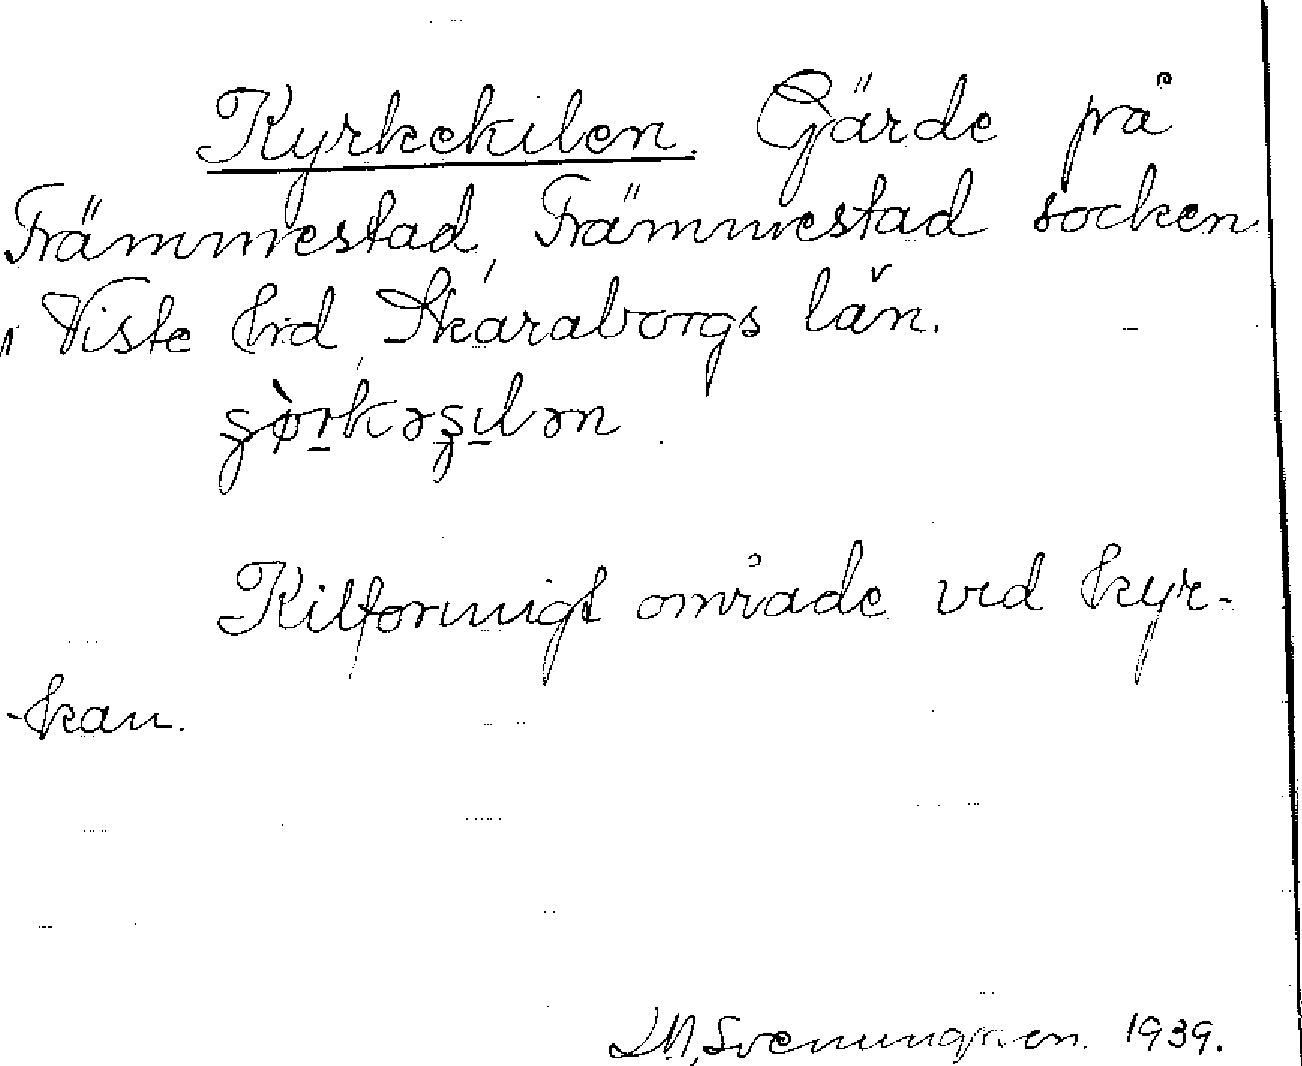 Kyrkekilen. Gärde på
Främmestad, Främmestad socken
Viste hrd, Skaraborgs län.
Kilformigt område ved kyr-
-kan.
Svenungsson. 1939.